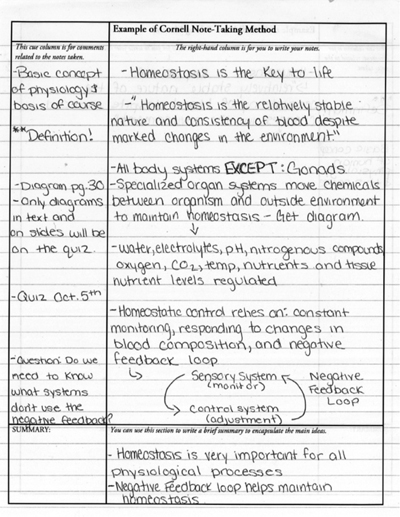 Example of Cornell Note-Taking Method
This cue column is for comments
related to the notes taken.
The right-hand column is for you to write your notes.
-Basic concept
of physiology &
basis of course
**Definition!
-Diagram pg.30
-Only diagrams
in text and
on slides will be
on the quiz.
-Quiz Oct.5th
-Question: Do we
need to know
what systems
don't use the
negative feedback?
-Homeostasis is the key to life
-"Homeostasis is the relatively stable
nature and consistency of blood despite
marked changes in the environment"
-All body systems EXCEPT: Gonads
-Specialized organ systems move chemicals
between organism and outside environment
to maintain homeostasis - Get diagram.
-water, electrolytes, pH, nitrogenous compounds,
oxygen, CO2, temp, nutrients and tissue
nutrient levels regulated
-Homeostatic control relies on: constant
monitoring, responding to changes in
blood composition, and negative
feedback loop
Sensory System
(monitor)
Control System
(adjustment)
Negative
Feedback
Loop
SUMMARY:
You can use this section to write a brief summary to encapsulate the main ideas.
- Homeostasis is very important for all
physiological processes
-Negative Feedback loop helps maintain
homeostasis